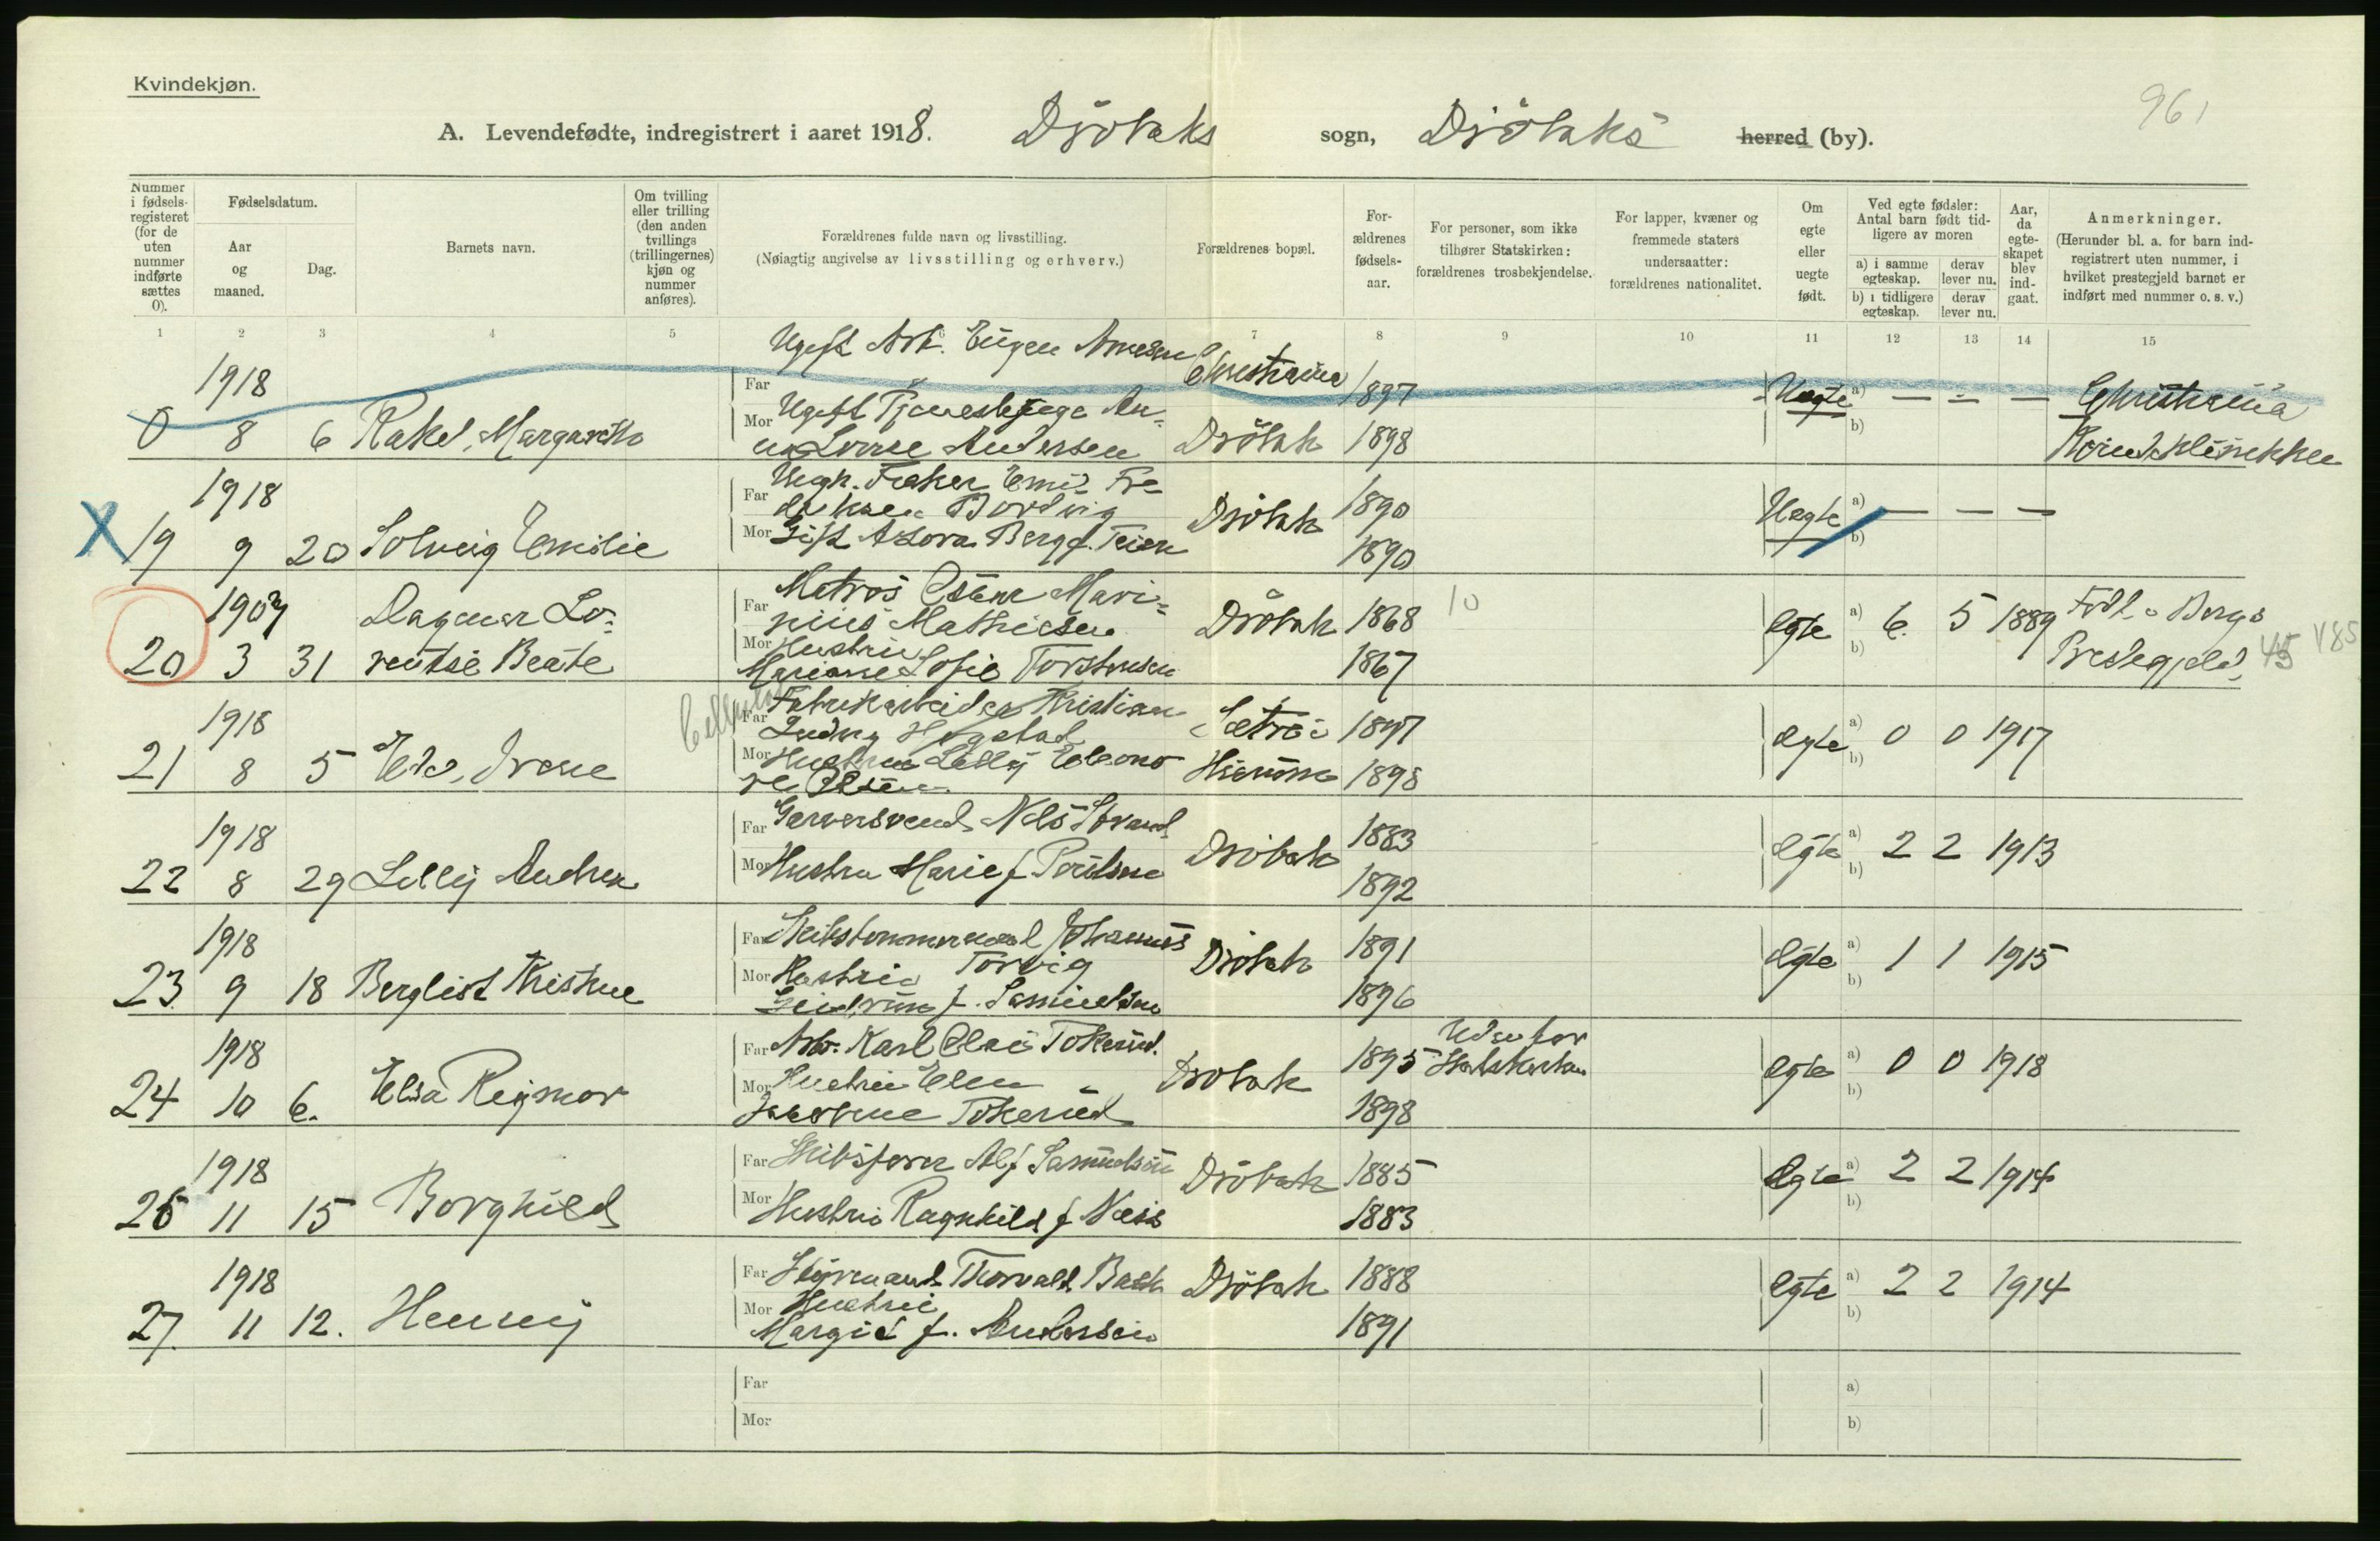 Kvindekjøn.
961
A. Levendefødte, indregistrert i aaret 1918. Drøbaks sogn, Drøbaks herred (by).
Nummer i fødsels-registeret (for de uten nummer indførte sættes 0).
Fødselsdatum.
Aar og maaned.
Dag.
Barnets navn.
Om tvilling eller trilling (den anden tvillings (trillingernes) kjøn og nummer anføres).
Forældrenes fulde navn og livsstilling.
(Nøiagtig angivelse av livsstilling og erhverv.)
Forældrenes bopæl.
For-ældrenes fødsels-aar.
For personer, som ikke tilhører Statskirken: forældrenes trosbekjendelse.
For lapper, kvæner og fremmede staters undersaatter: forældrenes nationalitet.
Om egte eller uegte født.
Ved egte fødsler: Antal barn født tid-ligere av moren
a) i samme egteskap.
derav lever nu.
b) i tidligere egteskap.
derav lever nu.
Aar, da egte-skapet blev ind-gaat.
Anmerkninger.
(Herunder bl. a. for barn ind-registrert uten nummer, i hvilket prestegjeld barnet er indført med nummer o. s. v.)
1 2 3 4 5 6 7 8 9 10 11 12 13 14 15
Ugift Arb. Eugen Arnesen
1918 Far Christiania 1897 Uegte a) — — — Christiania
0 8 6 Rakel, Margarethe Mor Ugift Tjenestepige An-
na Lovise Andersen Drøbak 1898 b) Kvindeklinikken
1918 Far Ungk. Fisker Emil Fre-
driksen Bording Drøbak 1890 Uegte a) — — —
X 19 9 20 Solveig Emilie Mor Gift Azora Berg f. Teien 1890 b)
1907 Dagmar Lo- Far Matros Oskar Mari-
nius Mathiesen Drøbak 1868 10 egte a) 6 5 1889 Født i Bergs
20 3 31 rentse Beate Mor Hustru
Marianne Sofie Torstensen 1867 b) Prestegjeld. 45 V85
1918 Far Fabrikarbeider Kristian
Ludvig Høgstad Sætre i 1897 egte a) 0 0 1917
21 8 5 Else, Irene Mor Hustru Lilly Eleono
re Olsen Hurum 1898 b)
1918 Far Garversvend Nels Strand Drøbak 1883 egte a) 2 2 1913
22 8 29 Lilly Andrea Mor Hustru Marie f. Poulsen 1892 b)
1918 Far Skibstømmermand Johannes
23. 9 18 Bergliot Kristine Mor Hustru Torvig Drøbak 1891 egte a) 1 1 1915
Gudrun f. Samuelsen 1896 b)
1918 Far Arb. Karl Olai Tokerud. Drøbak 1895 Udenfor
Statskirken egte a) 0 0 1918
24 10 6. Elsa Reymor Mor Hustru Elen
Jakobine Tokerud 1898 b)
1918 Far Skibsfører Alf Samuelsen Drøbak 1885 egte a) 2 2 1914
26 11 15 Borghild Mor Hustru Ragnhild f. Næss 1883 b)
1918 Far Styrmand Thorvald Bash Drøbak 1888 egte a) 2 2 1914
27. 11 12. Henny Mor Hustru
Margit f. Andersen 1891 b)
Far a)
Mor b)